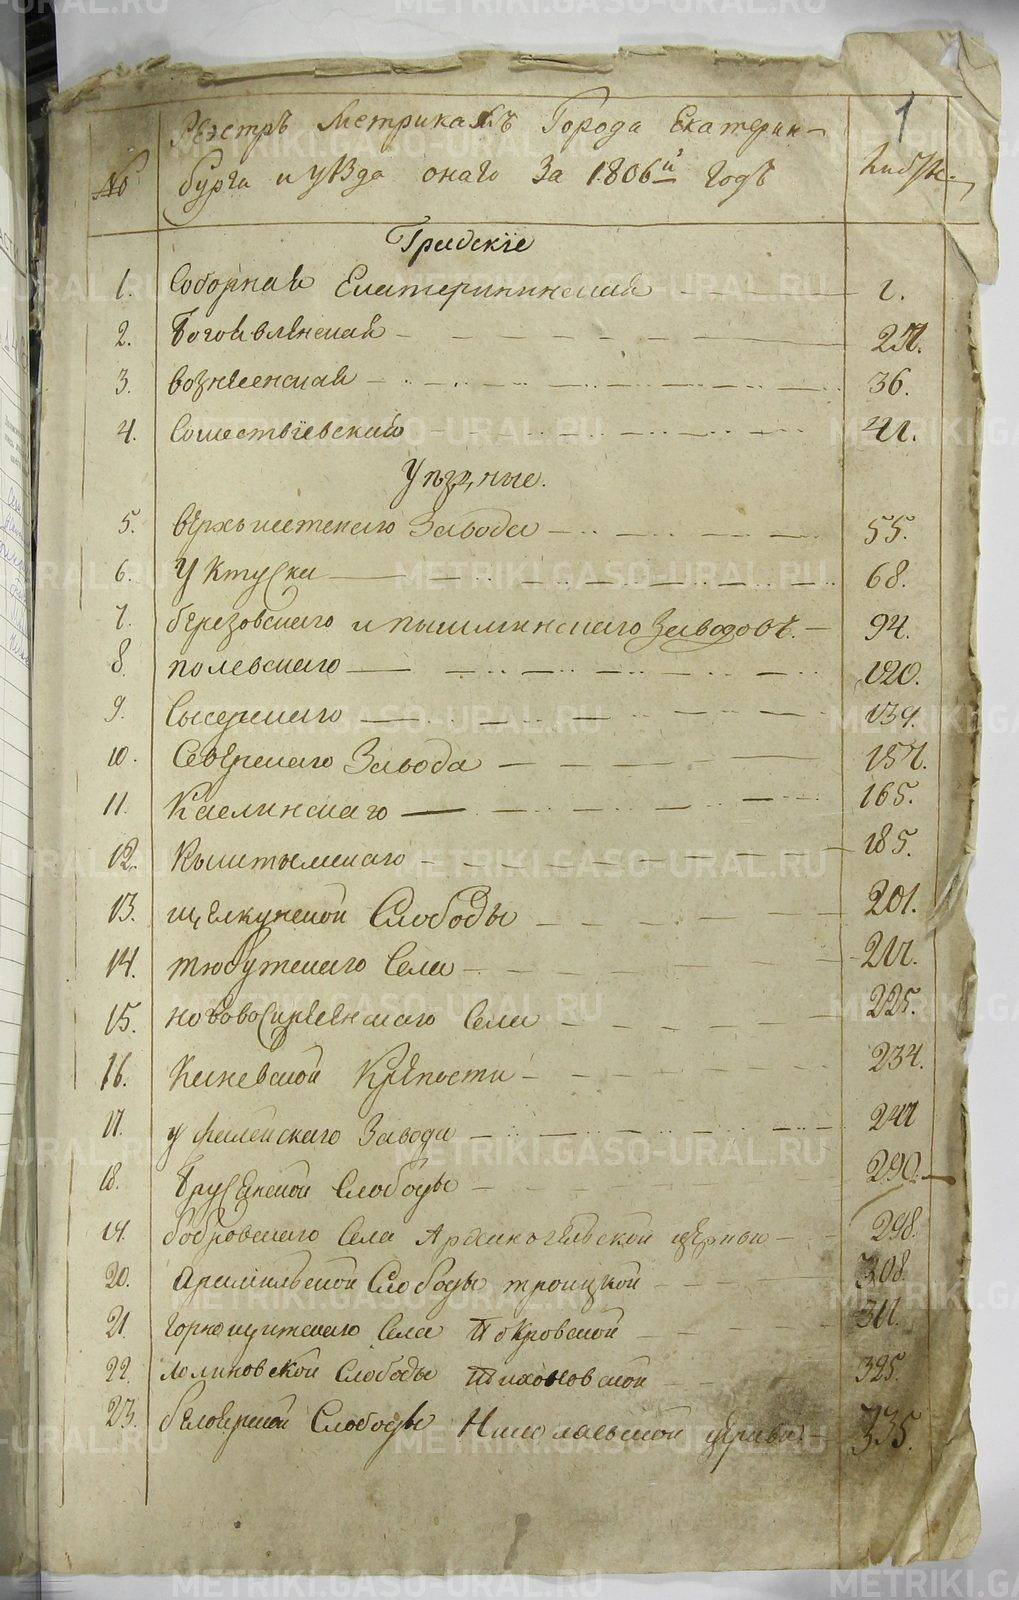 1
Реэстръ Метрикамъ Города Екатерин-
№ бурга и уѣзда онаго За 1806й годъ
Градскіе
1. Соборная Екатерининская 1.
2. Богоявленская 27.
3. вознесенская 36.
4. Сошествіевская 41.
Уѣздные.
5. верхъ исетскаго Завода 55.
6. Уктуска 68.
7. березовскаго и пышминскаго Заводовъ. 94.
8. полевскаго 120.
9. Сысерскаго 139.
10. Северскаго Завода 157.
11. Каслинскаго 165.
12. Кыштымскаго 185.
13. щелкунской Слободы 201.
14. тюбукскаго Села 217.
15. нововоскресенскаго Села 225.
16. Крепости 234.
17. уфалейскаго Завода 247
18. брусенской Слободы 290.
19. бобровскаго Села Архангельской церкви 298.
20. арамильской Слободы троицкой 308.
21. горнощитскаго Села Покровской 317.
22. Слободы Тихоновской 325.
23. белоерской Слободы Николаевской церкви 335.
METRIKI.GASO-URAL.RU